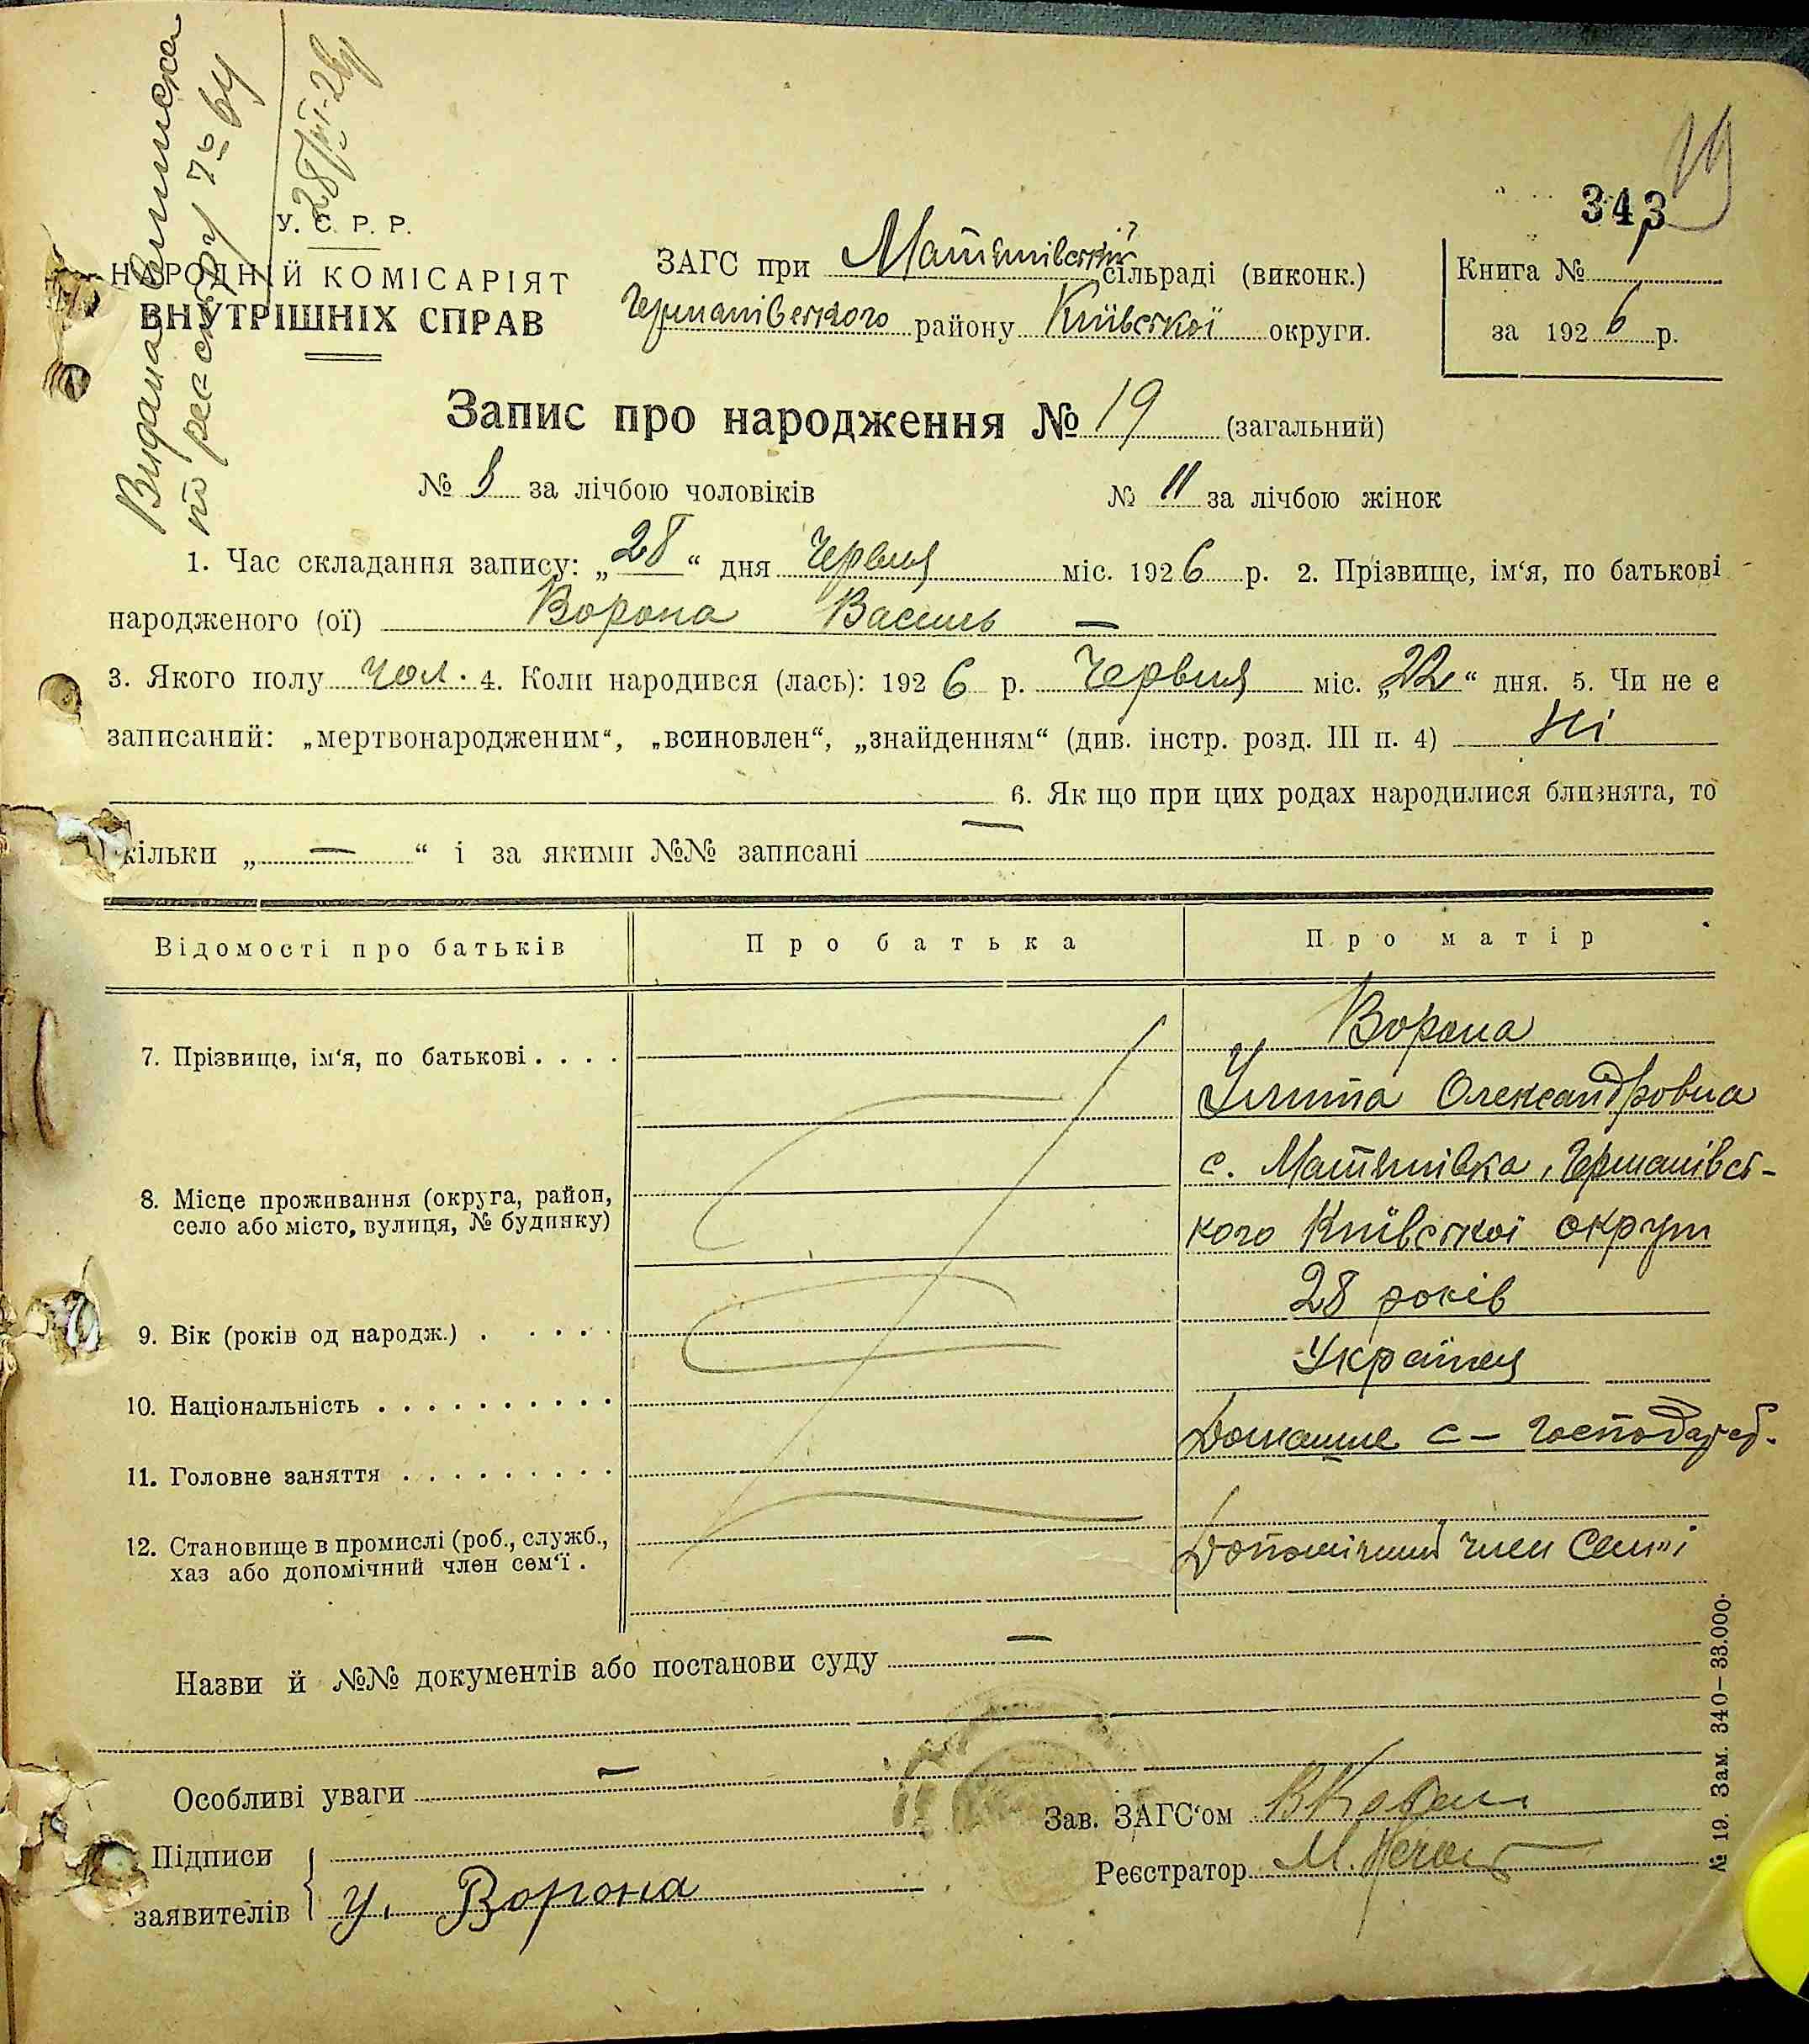 Видана виписка
по реєстру № 64
28/VI-26 р
19
343
У. С. Р. Р.
НАРОДНІЙ КОМІСАРІЯТ
ВНУТРІШНІХ СПРАВ
ЗАГС при Матяшівській сільраді (виконк.)
Германівського району Київської округи.
Книга №
за 1926 р.
Запис про народження № 19 (загальний)
№ 8 за лічбою чоловіків
№ 11 за лічбою жінок
1. Час складання запису: „28“ дня Червня міс. 1926 р. 2. Прізвище, ім‘я, по батькові
народженого (ої) Ворона Василь —
3. Якого полу чол. 4. Коли народився (лась): 1926 р. Червня міс. „22“ дня. 5. Чи не є
записаний: „мертвонародженим“, „всиновлен“, „знайденням“ (див. інстр. розд. III п. 4) Ні
6. Як що при цих родах народилися близнята, то
кільки „—“ і за якими №№ записані —
Відомості про батьків Про батька Про матір
7. Прізвище, ім‘я, по батькові . . . . Ворона
Улита Олександровна
8. Місце проживання (округа, район,
село або місто, вулиця, № будинку)
с. Матяшівка, Германівсь-
кого Київської округи
9. Вік (років од народж.) . . . . . 28 років
10. Національність . . . . . . . . . . Українця
11. Головне заняття . . . . . . . . . Домашнє с – господар.
12. Становище в промислі (роб., служб.,
хаз або допомічний член сем‘ї .
Допомічний член Семьі
Назви й №№ документів або постанови суду —
Особливі уваги —
Зав. ЗАГС‘ом
Реєстратор
Підписи
заявителів
У. Ворона
№ 19. Зам. 340—33.000.